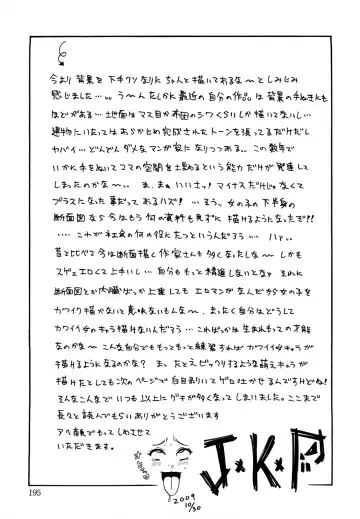 今より背景を下手クソなりにちゃんと描いてあるな〜としみじみ
感じました…。う〜んたしかに最近の自分の作品は背景の手ぬきにも
ほどがある…地面はマス目か布団のシワくらいしか描いてないし…
建物にいたってはあらかじめ完成されたトーンを張ってるだけだし
ヤバイ…どんどんダメなマンガ家になりつつある…。この数年で
いかに手をぬいてコマの空間を土埋めるという能力だけが発達して
しまったのかな〜。ま、まぁいいさッ！マイナスだけじゃなくて
プラスになった事だってあるハズ！…そるう、女の子の下半身の
断面図なら今はもう何の資料も見ずに描けるようになったぞ!!
……これが社会の何の役にたつというんだろう…ハァ…。
昔と比べて今は断面描く作家さんも多くなったしな〜しかも
スゲェエロくて上手いし…自分ももっと精進しないとなァ それに
断面図とか内臓ばっか上達してもエロマンガなんだから女の子を
カワイク描かないと意味ないもんな〜、まったく自分はどうして
カワイイ女のキャラ描けないんだろう…こればっかは生まれもっての才能
なのかな〜こんな自分でももっともっと練習すればカワイイ女キャラが
描けるようになるのかな？ まったとえビックリするような萌えキャラが
描けたとしても次のページで白目ムいてゲロ吐かせるんですけどね！
そんなこんなでいつも以上にグチが多くなってしまいました。ここまで
長々と読んでもらいありがとうございます
アヘ顔でもってしめさせて
いただきます。
J×K×P
2009
10/30
195